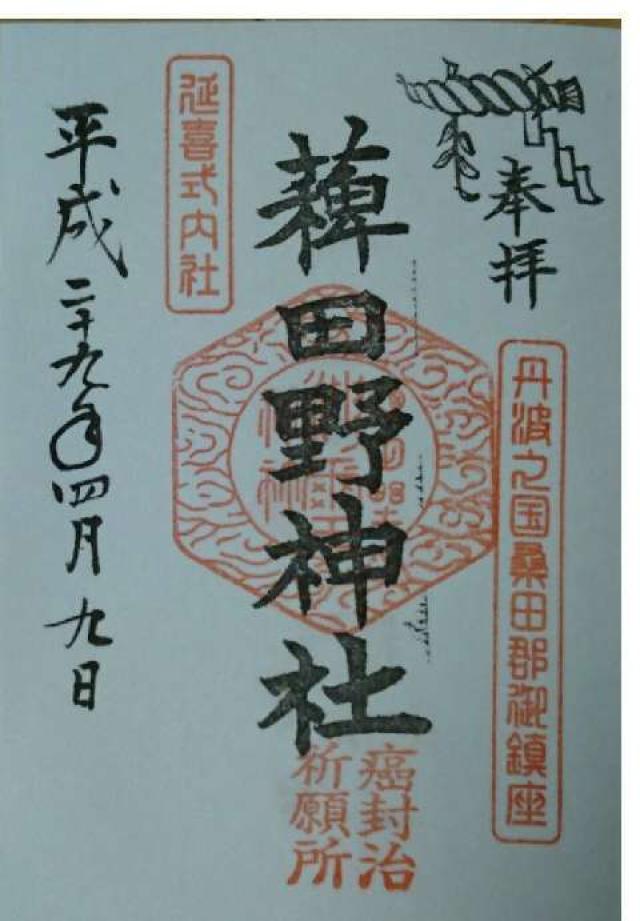 奉拝
丹波之国桑田郡御鎮座
薭田野神社
癌封治
祈願所
延喜式内社
平成二十九年四月九日